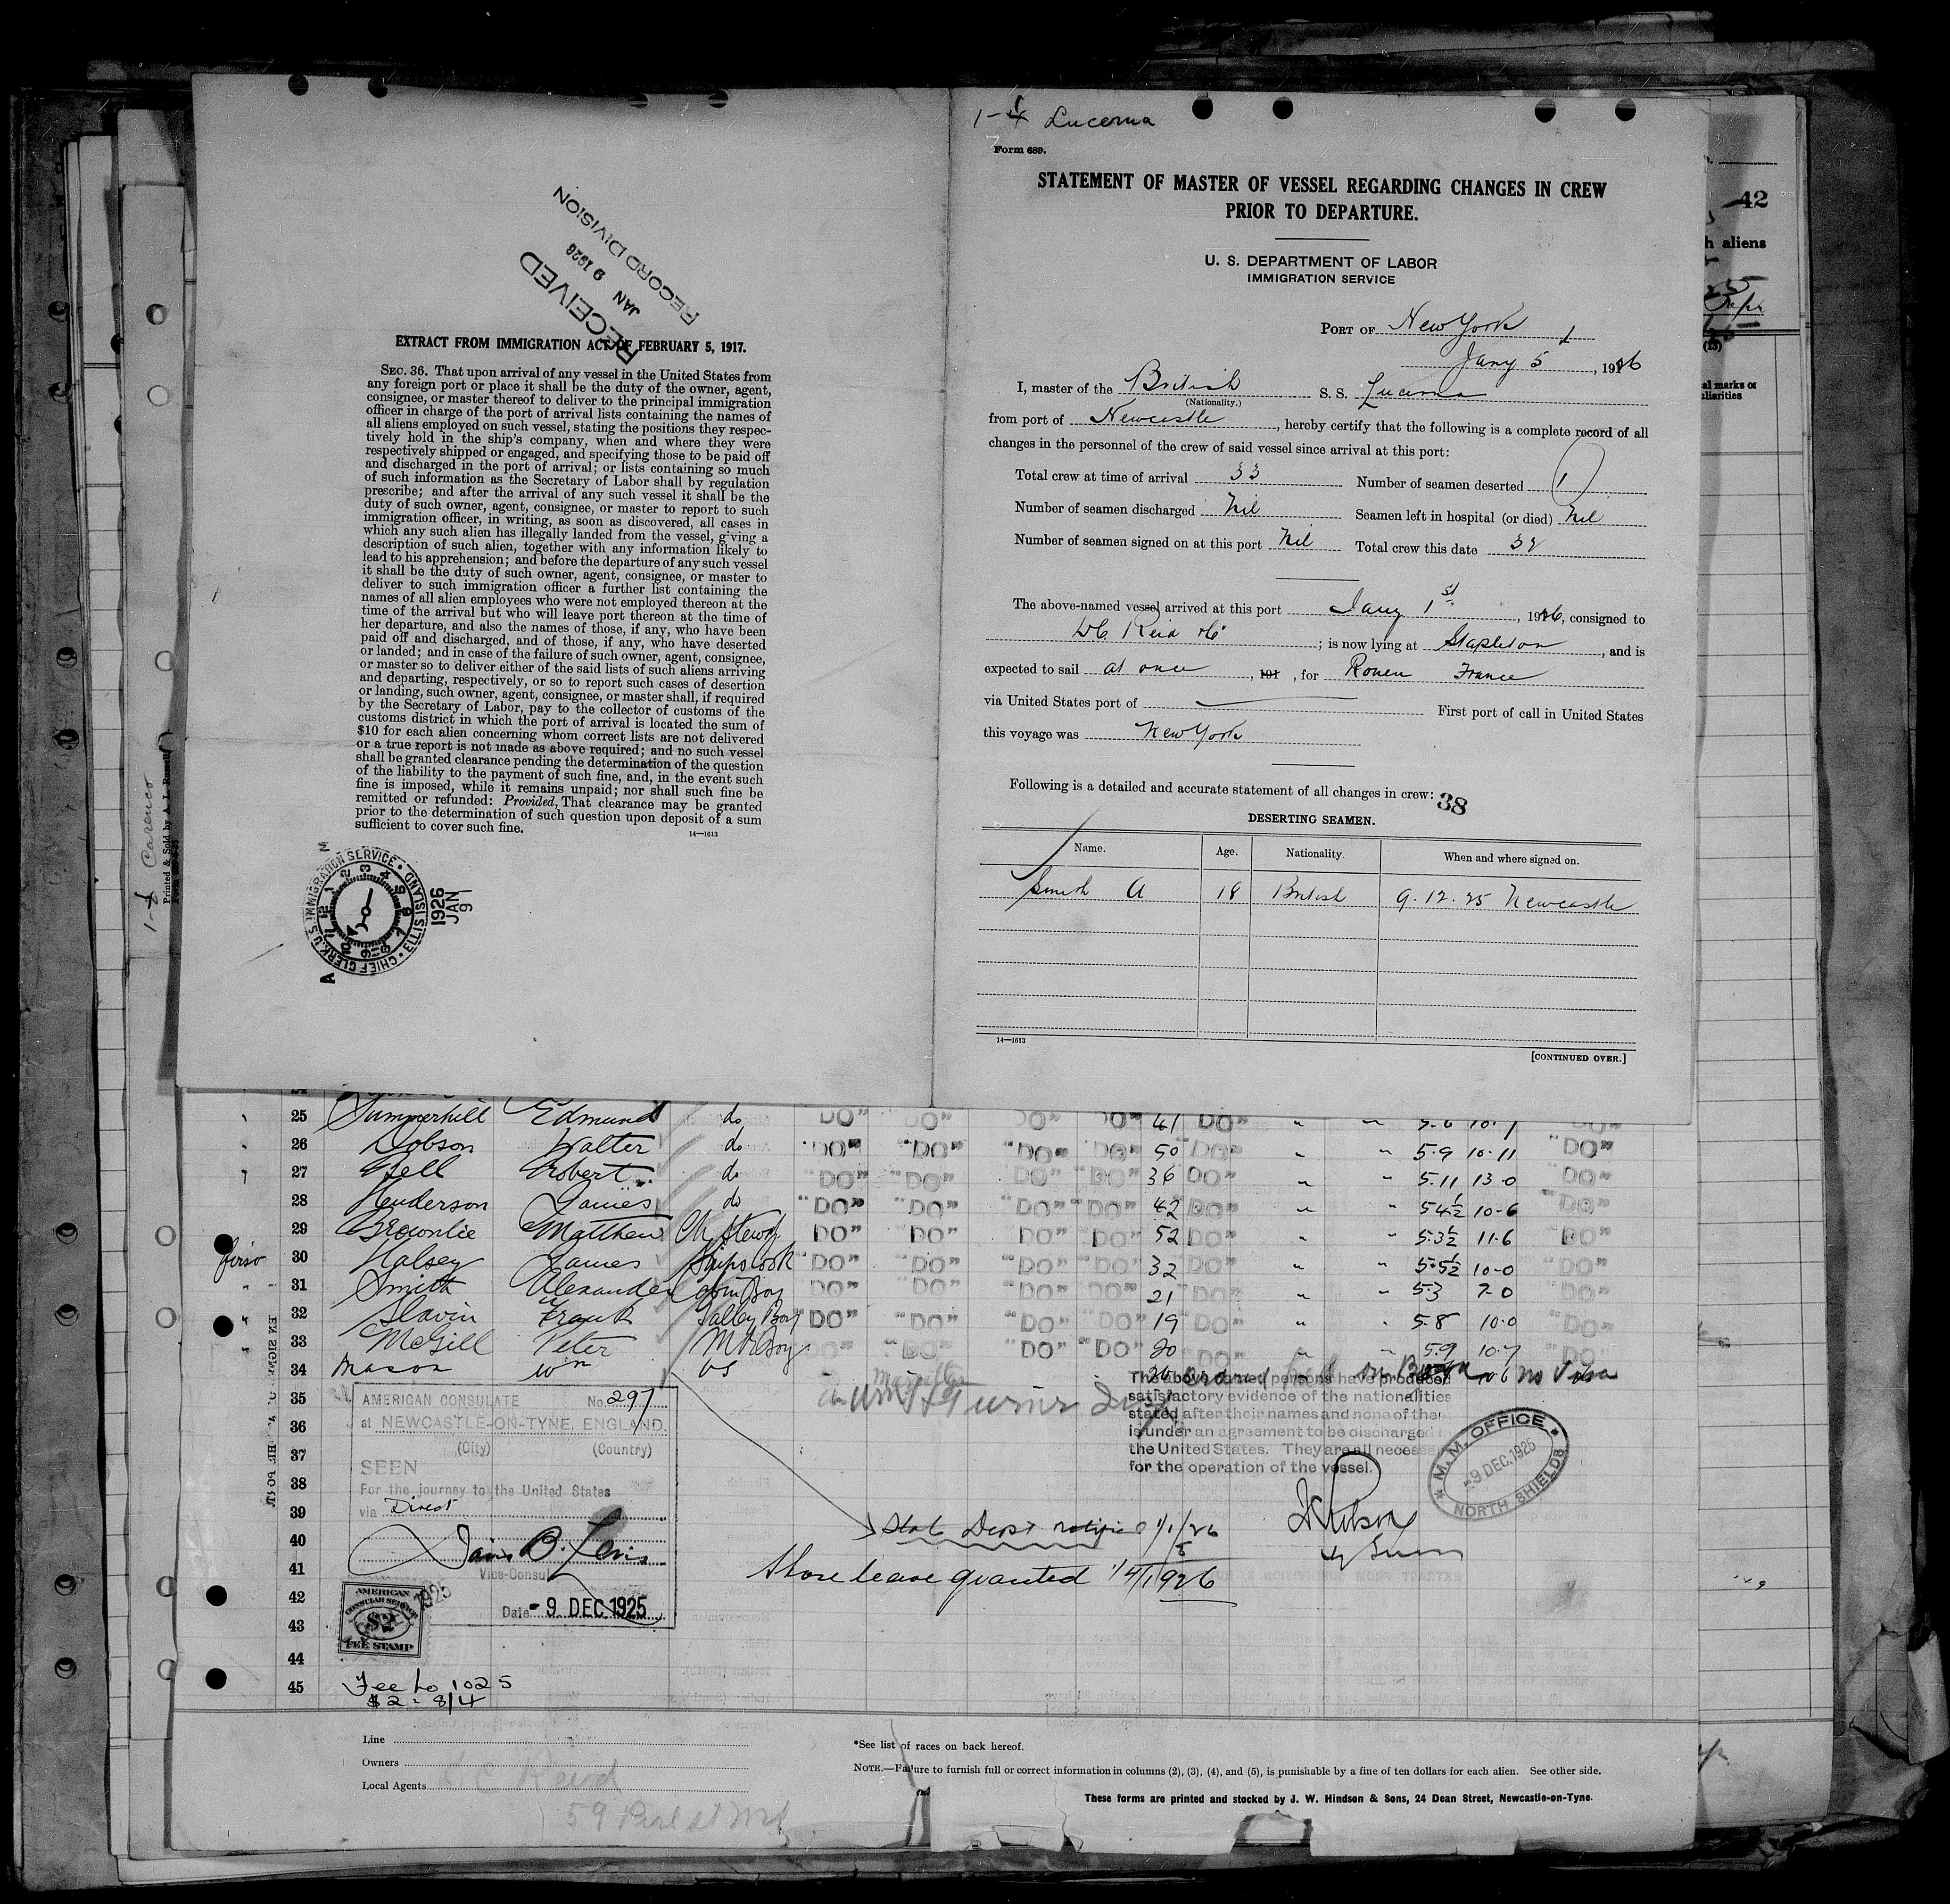 RECEIVED
JAN 9 1926
RECORD DIVISION
EXTRACT FROM IMMIGRATION ACT OF FEBRUARY 5, 1917.
SEC. 36. That upon arrival of any vessel in the United States from
any foreign port or place it shall be the duty of the owner, agent,
consignee, or master thereof to deliver to the principal immigration
officer in charge of the port of arrival lists containing the names of
all aliens employed on such vessel, stating the positions they respec-
tively hold in the ship's company, when and where they were
respectively shipped or engaged, and specifying those to be paid off
and discharged in the port of arrival; or lists containing so much
of such information as the Secretary of Labor shall by regulation
prescribe; and after the arrival of any such vessel it shall be the
duty of such owner, agent, consignee, or master to report to such
immigration officer, in writing, as soon as discovered, all cases in
which any such alien has illegally landed from the vessel, giving a
description of such alien, together with any information likely to
lead to his apprehension; and before the departure of any such vessel
it shall be the duty of such owner, agent, consignee, or master to
deliver to such immigration officer a further list containing the
names of all alien employees who were not employed thereon at the
time of the arrival but who will leave port thereon at the time of
her departure, and also the names of those, if any, who have been
paid off and discharged, and of those, if any, who have deserted
or landed; and in case of the failure of such owner, agent, consignee,
or master so to deliver either of the said lists of such aliens arriving
and departing, respectively, or so to report such cases of desertion
or landing, such owner, agent, consignee, or master shall, if required
by the Secretary of Labor, pay to the collector of customs of the
customs district in which the port of arrival is located the sum of
$10 for each alien concerning whom correct lists are not delivered
or a true report is not made as above required; and no such vessel
shall be granted clearance pending the determination of the question
of the liability to the payment of such fine, and, in the event such
fine is imposed, while it remains unpaid; nor shall such fine be
remitted or refunded: Provided, That clearance may be granted
prior to the determination of such question upon deposit of a sum
sufficient to cover such fine.
14—1613
CHIEF CLERK U.S. IMMIGRATION SERVICE • ELLIS ISLAND
1926 JAN 9
Lucerna
Form 689.
STATEMENT OF MASTER OF VESSEL REGARDING CHANGES IN CREW
PRIOR TO DEPARTURE.
U. S. DEPARTMENT OF LABOR
IMMIGRATION SERVICE
PORT OF New York
Jany 5, 1926
I, master of the British S. S. Lucerna
(Nationality.)
from port of Newcastle, hereby certify that the following is a complete record of all
changes in the personnel of the crew of said vessel since arrival at this port:
Total crew at time of arrival 33 Number of seamen deserted 1
Number of seamen discharged Nil Seamen left in hospital (or died) Nil
Number of seamen signed on at this port Nil Total crew this date 32
The above-named vessel arrived at this port Jany 1st, 1926, consigned to
Reid & Co; is now lying at Stapleton, and is
expected to sail at once, 191, for Rouen France
via United States port of First port of call in United States
this voyage was New York
Following is a detailed and accurate statement of all changes in crew: 38
DESERTING SEAMEN.
Name. Age. Nationality. When and where signed on.
Smith A 18 British 9.12.25 Newcastle
14—1613
[CONTINUED OVER.]
42
h aliens
(13)
al marks or
uliarities
1-4 Caronco
Printed & Sold by A. L. Russell
25 Summerhill Edmund do DO" DO" DO" DO" 41 DO" " " 5.6 10.7 DO"
26 Dobson Walter do "DO" "DO" "DO" "DO" 50 DO" " " 5.9 10.11 "DO"
27 Bell Robert do "DO" "DO" DO" "DO" 36 DO" " " 5.11 13.0 DO"
28 Henderson James do "DO" "DO" "DO" "DO" 42 DO" " " 5 4½ 10-6 "DO"
29 Brownlie Matthew Ch. Stewd DO" DO" DO" DO" 52 DO" " " 5.3½ 11.6 DO"
30 Halsey James Ships Cook DO" DO" DO" DO" 32 DO" " " 5.5½ 10-0 DO"
31 Smith Alexander Cabin Boy DO" DO" DO" DO" 21 DO" " " 5.3 7-0 DO"
32 Slavin Frank Galley Boy DO" "DO" "DO" "DO" 19 DO" " " 5.8 10.0 "DO"
33 McGill Peter M R Boy DO" "DO" DO" "DO" 20 DO" " " 5.9 10.7 DO"
34 Mason Wm OS 26 10-6 no Visa
35
36
37
38
39
40
41
42
43
44
45
AMERICAN CONSULATE No. 297
at NEWCASTLE-ON-TYNE, ENGLAND.
(City) (Country)
SEEN
For the journey to the United States
via Direct
Vice-Consul
Date - 9 DEC. 1925
AMERICAN
CONSULAR SERVICE
$2
FEE STAMP
Fee No 1025
$2 = 8/4
The above named persons have produced
satisfactory evidence of the nationalities
stated after their names and none of the
is under an agreement to be discharged
the United States. They are all neces
for the operation of the vessel.
★ M.M. OFFICE ★ NORTH SHIELDS
-9 DEC. 1925
State Dept notified 1/1/26
Shore leave granted 1/4/1926
Line
Owners
Local Agents
59 Perl St
*See list of races on back hereof.
NOTE.—Failure to furnish full or correct information in columns (2), (3), (4), and (5), is punishable by a fine of ten dollars for each alien. See other side.
These forms are printed and stocked by J. W. Hindson & Sons, 24 Dean Street, Newcastle-on-Tyne.